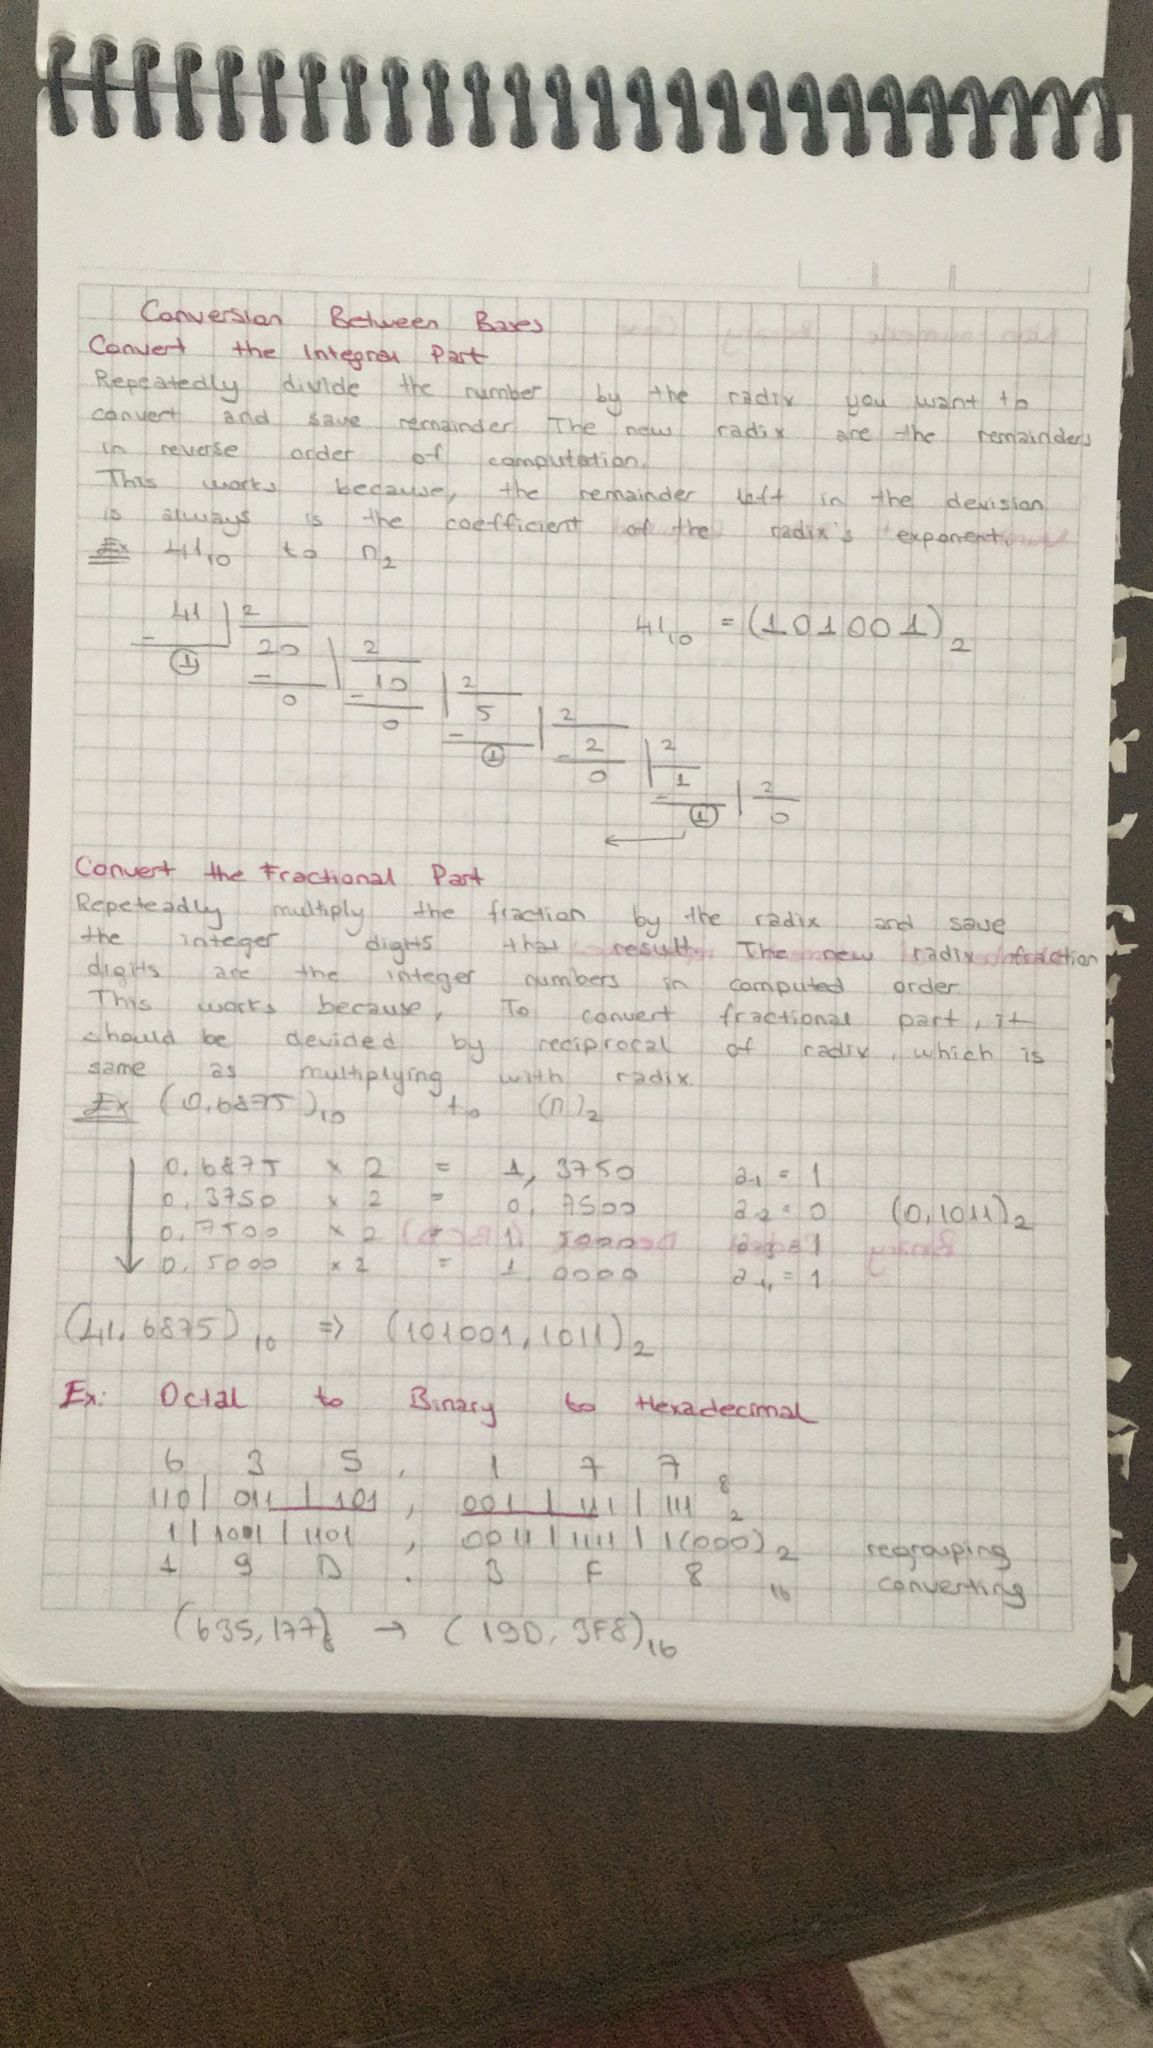 Conversion Between Bases
Convert the Integral Part
Repeatedly divide the number by the radix you want to
convert and save remainder. The new radix are the remainders
in reverse order of computation.
This works because, the remainder left in the devision
is always is the coefficient of the radix's exponent.
Ex 41₁₀ to n₂
41 2 41₁₀ = (101001)₂
1 20 2
0 10 2
0 5 2
1 2 2
0 1 2
1 0
Convert the Fractional Part
Repeteadly multiply the fraction by the radix and save
the integer digits that result. The new radix fraction
digits are the integer numbers in computed order
This works because, To convert fractional part, it
should be devided by reciprocal of radix, which is
same as multiplying with radix.
Ex (0,6875)₁₀ to (n)₂
0,6875 × 2 = 1,3750 a₋₁ = 1
0,3750 × 2 = 0,7500 a₋₂ = 0 (0,1011)₂
0,7500 × 2 = 1,5000 a₋₃ = 1
0,5000 × 2 = 1,0000 a₋₄ = 1
(41,6875)₁₀ ⇒ (101001,1011)₂
Ex: Octal to Binary to Hexadecimal
6 3 5 , 1 7 7 ₈
110 | 011 | 101 , 001 | 111 | 111 ₂
1 | 1001 | 1101 , 0011 | 1111 | 1(000)₂ regrouping
1 9 D . 3 F 8 ₁₆ converting
(635,177)₈ → (19D,3F8)₁₆